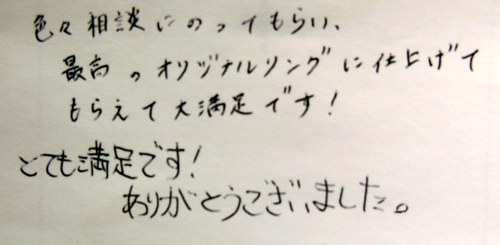 色々相談にのってもらい、
最高のオリジナルリングに仕上げて
もらえて大満足です!
とても満足です!
ありがとうございました。